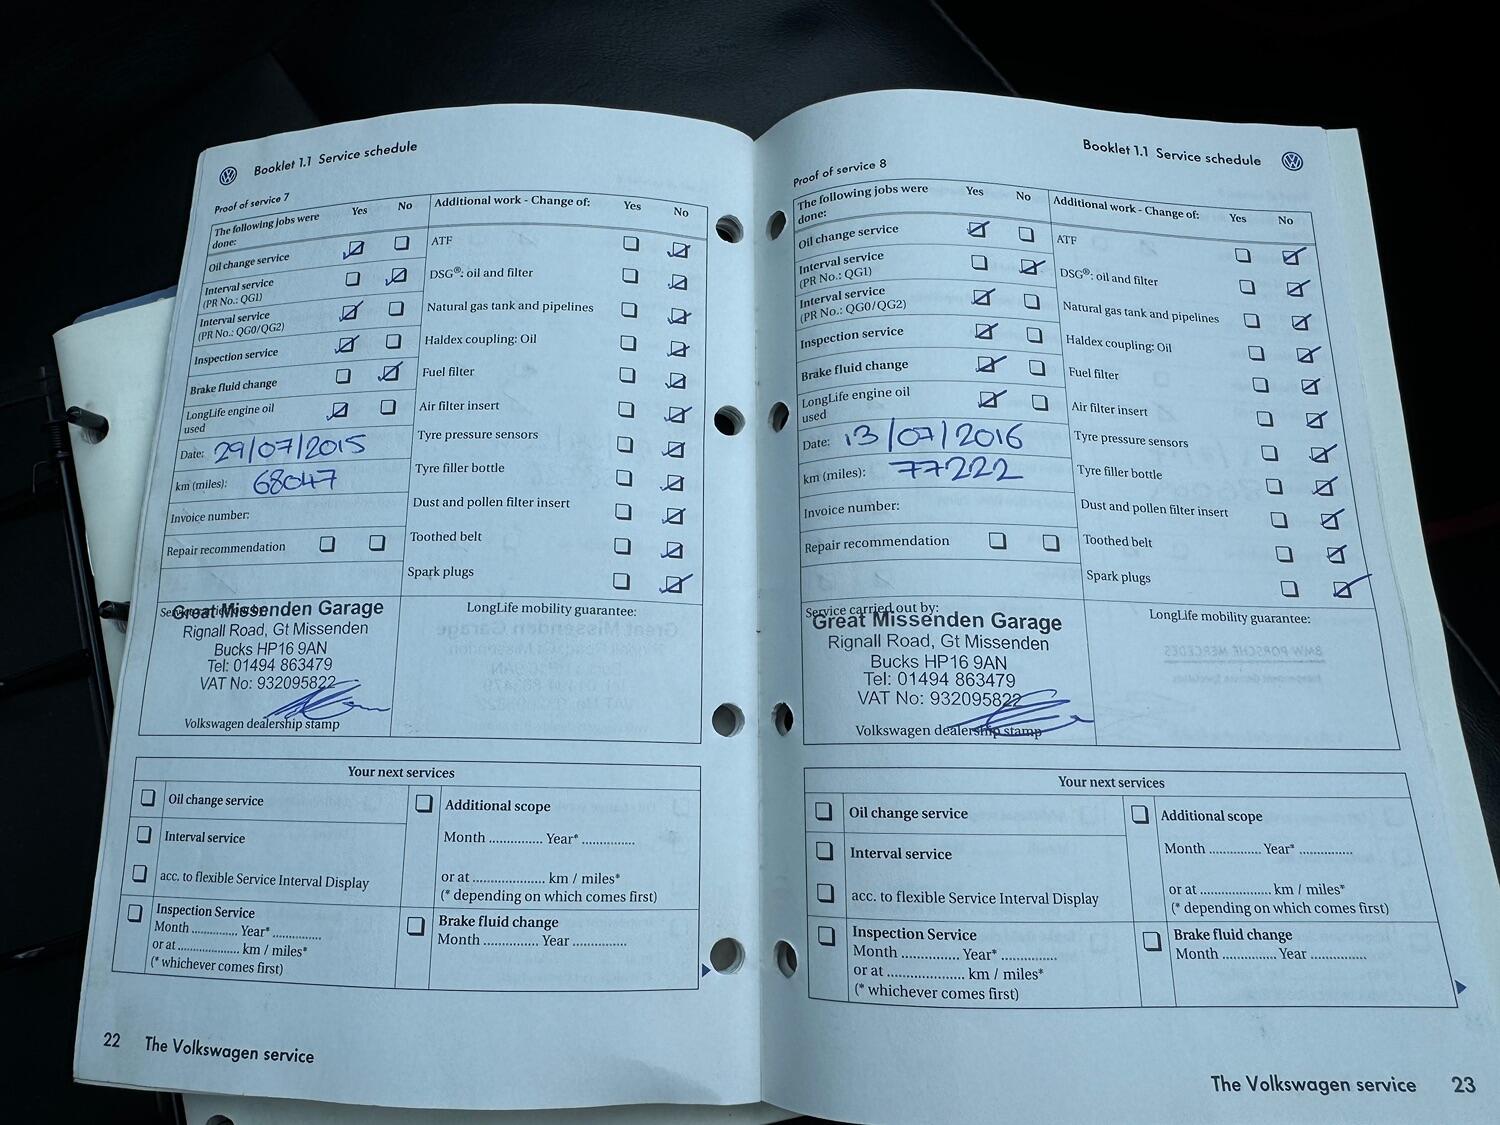 Booklet 1.1 Service schedule
Proof of service 7
The following jobs were done: Yes No
Oil change service
Interval service
(PR No.: QG1)
Interval service
(PR No.: QG0/QG2)
Inspection service
Brake fluid change
LongLife engine oil
used
Date: 29/07/2015
km (miles): 68047
Invoice number:
Repair recommendation
Additional work - Change of: Yes No
ATF
DSG®: oil and filter
Natural gas tank and pipelines
Haldex coupling: Oil
Fuel filter
Air filter insert
Tyre pressure sensors
Tyre filler bottle
Dust and pollen filter insert
Toothed belt
Spark plugs
Great Missenden Garage
Rignall Road, Gt Missenden
Bucks HP16 9AN
Tel: 01494 863479
VAT No: 932095822
Volkswagen dealership stamp
LongLife mobility guarantee:
Your next services
Oil change service
Interval service
acc. to flexible Service Interval Display
Inspection Service
Month ............. Year* .............
or at .................... km / miles*
(* whichever comes first)
Additional scope
Month .............. Year* ..............
or at ...................... km / miles*
(* depending on which comes first)
Brake fluid change
Month .............. Year ..............
22 The Volkswagen service
Booklet 1.1 Service schedule
Proof of service 8
The following jobs were
done: Yes No
Oil change service
Interval service
(PR No.: QG1)
Interval service
(PR No.: QG0/QG2)
Inspection service
Brake fluid change
LongLife engine oil
used
Date: 13/07/2016
km (miles): 77222
Invoice number:
Repair recommendation
Additional work - Change of: Yes No
ATF
DSG®: oil and filter
Natural gas tank and pipelines
Haldex coupling: Oil
Fuel filter
Air filter insert
Tyre pressure sensors
Tyre filler bottle
Dust and pollen filter insert
Toothed belt
Spark plugs
Service carried out by:
Great Missenden Garage
Rignall Road, Gt Missenden
Bucks HP16 9AN
Tel: 01494 863479
VAT No: 932095822
Volkswagen dealership stamp
LongLife mobility guarantee:
Your next services
Oil change service
Interval service
acc. to flexible Service Interval Display
Inspection Service
Month ............. Year* .............
or at .................... km / miles*
(* whichever comes first)
Additional scope
Month .............. Year* ..............
or at ...................... km / miles*
(* depending on which comes first)
Brake fluid change
Month .............. Year ..............
The Volkswagen service 23